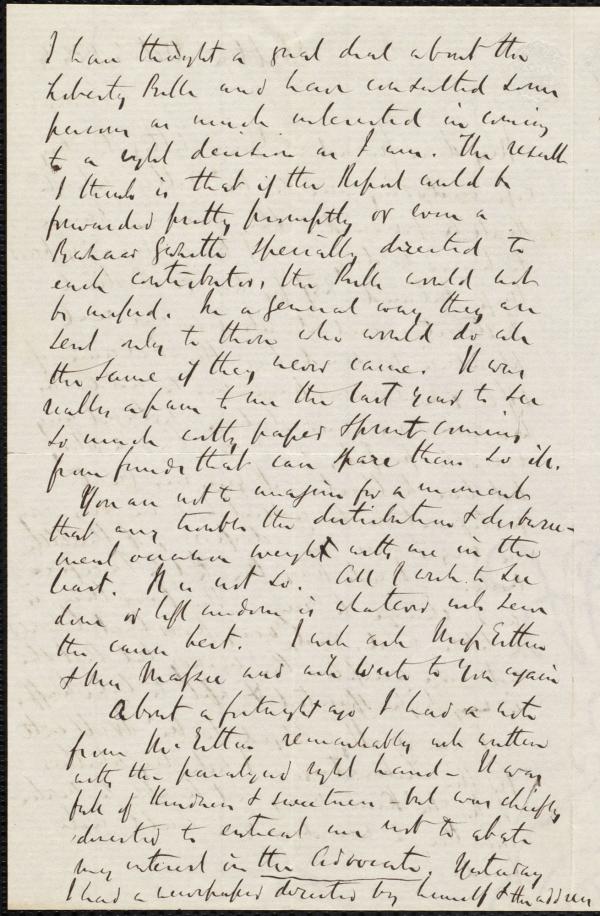 I have thought a great deal about the
Liberty Bell and have consulted some
persons as much interested in coming
to a right decision as I am. The result
I think is that if the Report could be
forwarded pretty promptly or even a
Bazaar Gazette specially directed to
each contributor, the Bell would not
be missed. In a general way they are
sent only to those who would do all
the same if they never came. It was
really a pain to me the last year to see
so much costly paper & print coming
from funds that can spare them so ill.
You are not to imagine for a moment
that any trouble the distribution & disburse-
ment occasion weighs with me in the
least. It is not so. All I wish to see
done or left undone is whatever will serve
the cause best. I will ask Miss Estlin
& Mrs Massie and will write to you again
About a fortnight ago I had a note
from Mr Estlin remarkably well written
with the paralyzed right hand - It was
full of kindness & sweetness - but was chiefly
directed to entreat me not to abate
my interest in the Advocate. Yesterday
I had a newspaper directed by himself & the address